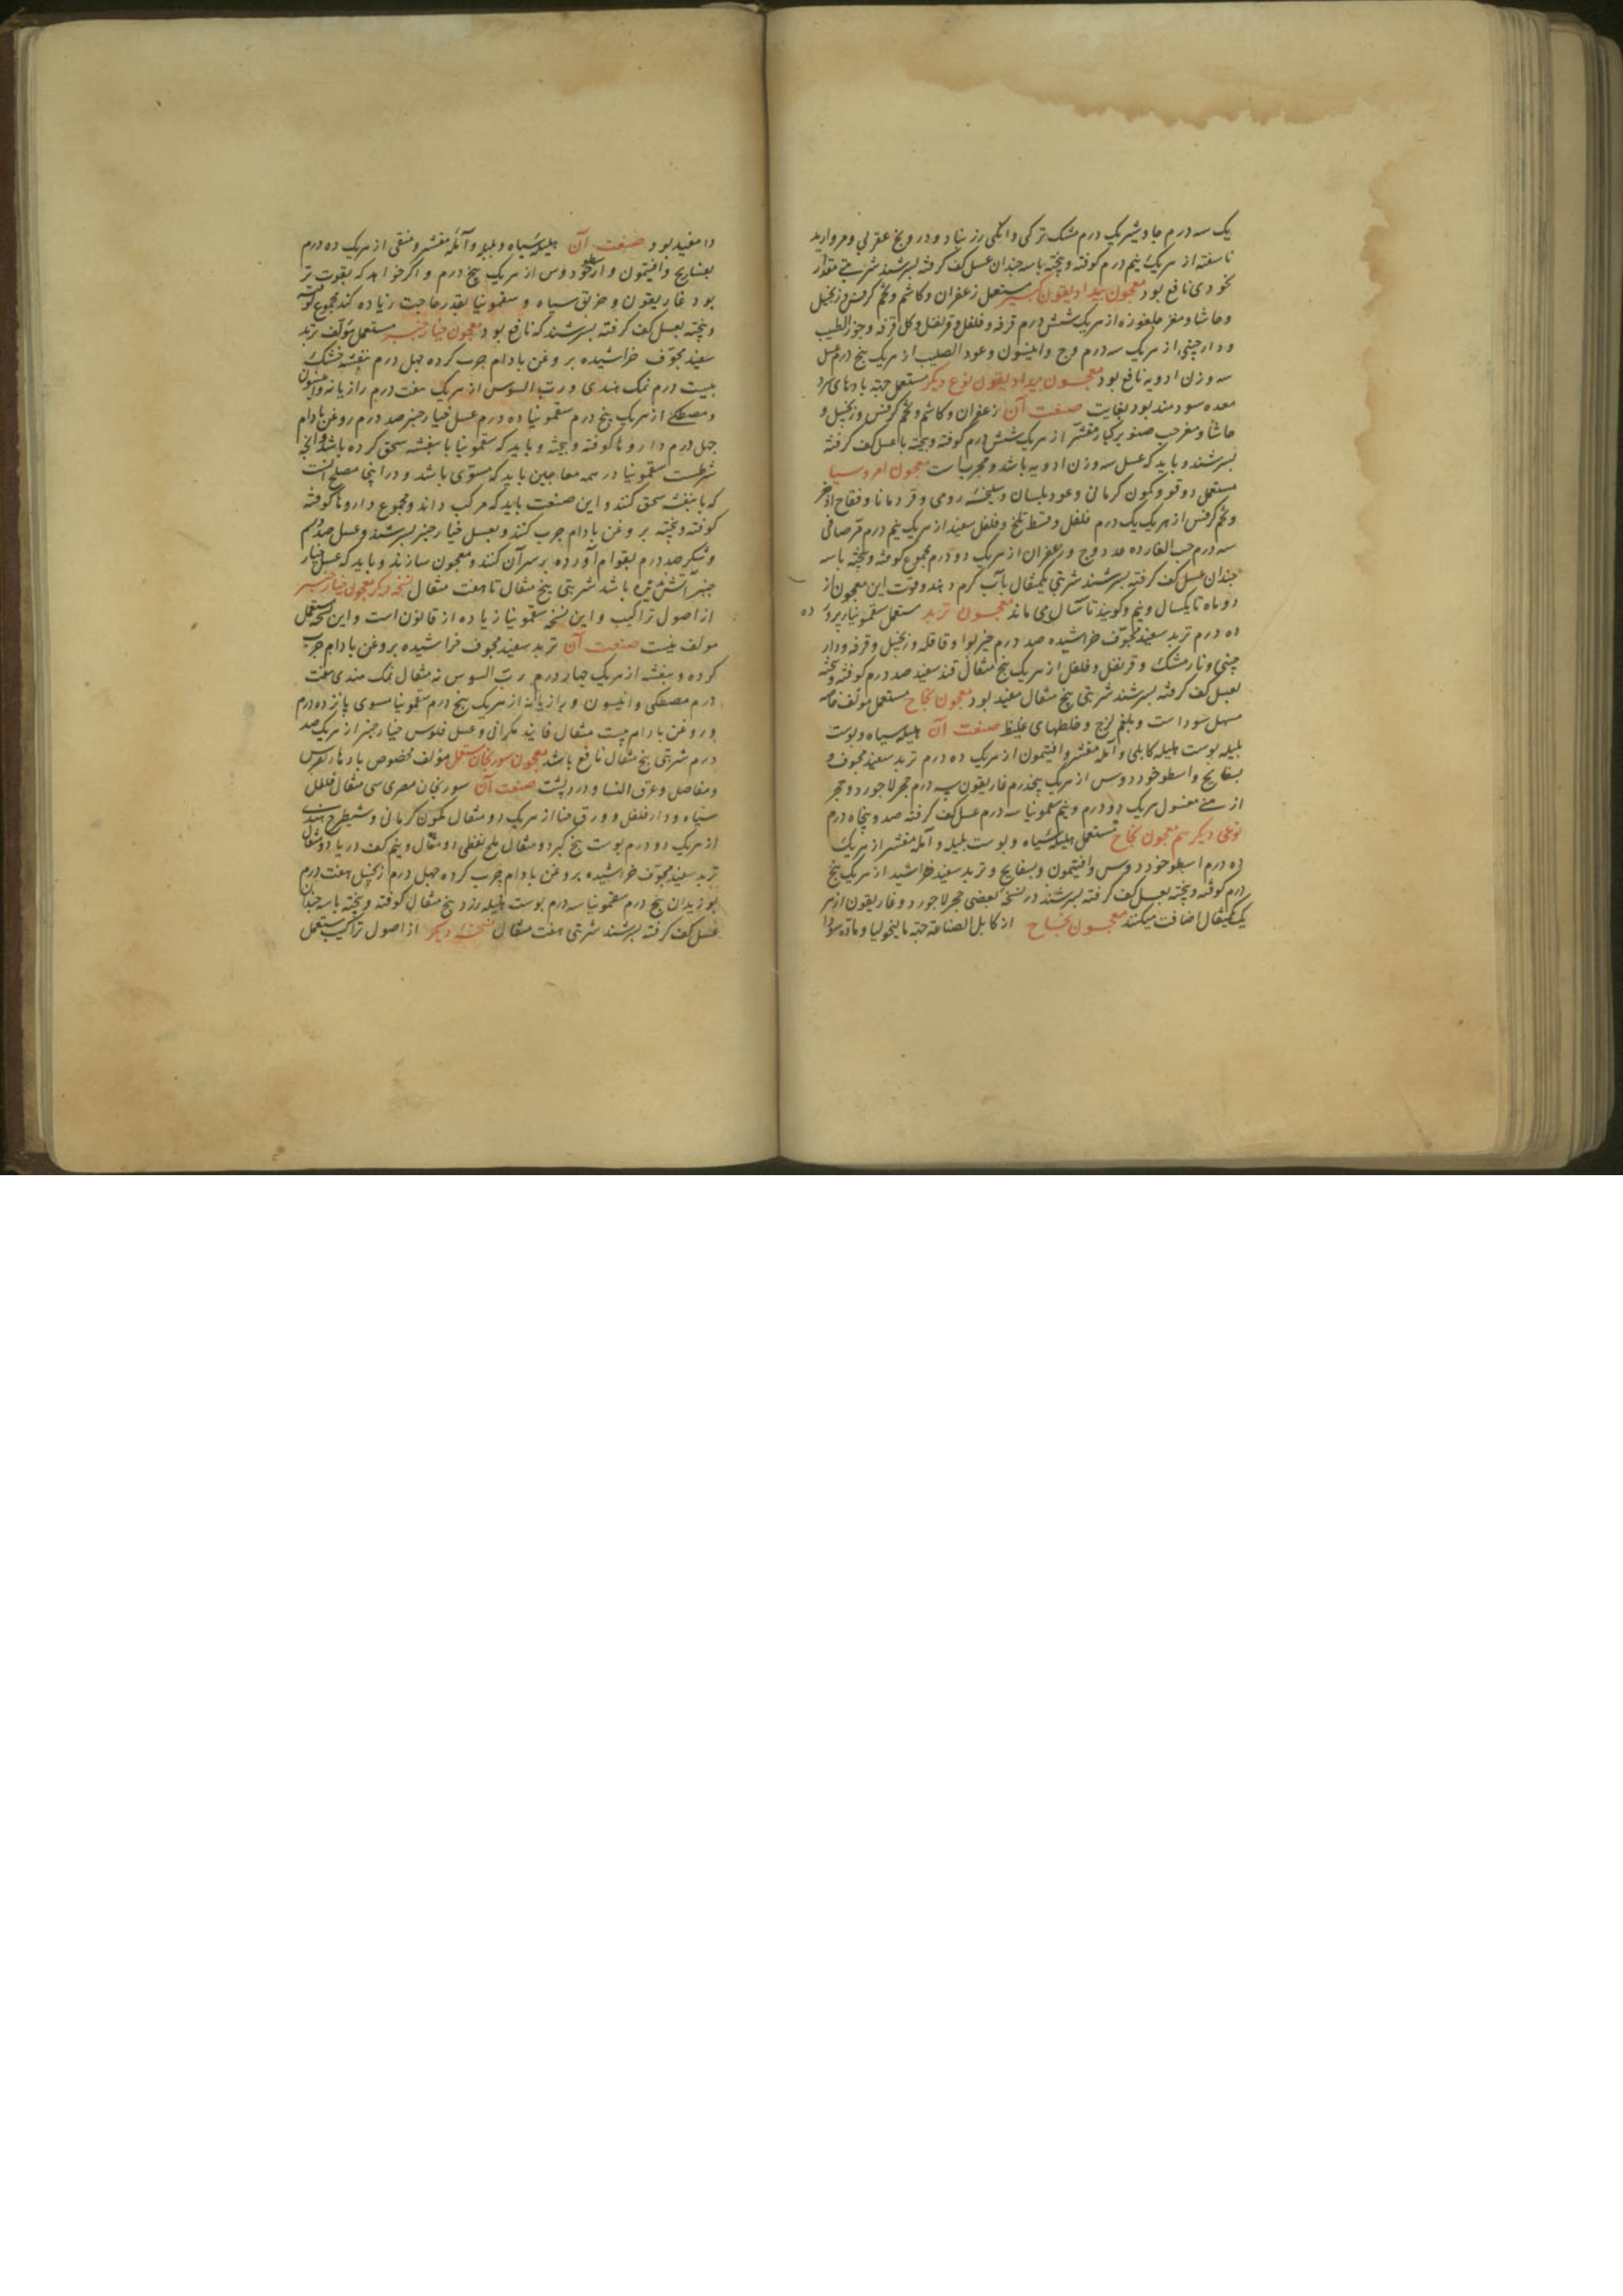 یک سه درم جاوشیر یک درم مشک ترکی دانکی زرنباد و درونج عقربی و مروارید
ناسفته از هر یک نیم درم کوفته و پخته با سه چندان عسل کف کرفته بسرشند شربتی مقدار
نخودی نافع بود معجون بیدادیقون کبیر مستعمل زعفران و کاشم و تخم کرفس و زنجبیل
و حاشا و مغز جلغوزه از هر یک شش درم قرفه و فلفل و قرنفل و کل قرفه و جوز الطیب
و دارچینی از هر یک سه درم وج و انیسون و عود الصلیب از هر یک پنج درم عسل
سه وزن ادویه نافع بود معجون بیدادیقون نوع دیکر مستعمل جهة بادهای سرد
معده سودمند بود بغایت صنعت آن زعفران و کاشم و تخم کرفس و زنجبیل و
حاشا و مغز حب صنوبر کبار مقشر از هر یک شش درم کوفته و پخته با عسل کف کرفته
بسرشند و باید که عسل سه وزن ادویه باشد و مجربست معجون امروسیا
مستعمل دوقو و کمون کرمانی و عود بلسان و سلیخه رومی و قردمانا و فقاح اذخر
و تخم کرفس از هر یک یک درم فلفل و قسط تلخ و فلفل سفید از هر یک نیم درم مر صافی
سه درم حب الغار ده عدد وج و زعفران از هر یک دو درم مجموع کوفته و پخته با سه
چندان عسل کف کرفته بسرشند شربتی یکمثقال با آب کرم دهند و قوت این معجون از
دو ماه تا یکسال و نیم و کویند تا سه سال می ماند معجون تربد مستعمل سقمونیا پرورده
ده درم تربد سفید مجوف خراشیده صد درم خیربوا و قاقله و زنجبیل و قرفه و دار
چینی و نارمشک و قرنفل و فلفل از هر یک پنج مثقال قند سفید صد درم کوفته و پخته
بعسل کف کرفته بسرشند شربتی پنج مثقال مفید بود معجون نجاح مستعمل مؤلف خاصه
مسهل سودا ست و بلغم لزج و خلطهای غلیظ صنعت آن هلیله سیاه و پوست
بلیله پوست هلیله کابلی و آمله مقشر و افتیمون از هر یک ده درم تربد سفید مجوف و
بسفایج و اسطوخودوس از هر یک پنجدرم غاریقون سه درم حجر لاجورد و حجر
ارمنی مغسول هر یک دو درم و نیم سقمونیا سه درم عسل کف کرفته صد و پنجاه درم
نوعی دیکر هم معجون نجاح مستعمل هلیله سیاه و پوست بلیله و آمله مقشر از هر یک
ده درم اسطوخودوس و افتیمون و بسفایج و تربد سفید خراشیده از هر یک پنج
درم کوفته و پخته بعسل کف کرفته بسرشند در نسخه بعضی حجر لاجورد و غاریقون از هر
یک یکمثقال اضافت میکنند معجون نجاح از کامل الصناعه جهة مالیخولیا و ماده سودا
را مفید بود صنعت آن هلیله سیاه و بلیله و آمله مقشر و منقی از هر یک ده درم
بسفایج و افتیمون و اسطوخودوس از هر یک پنج درم و اکر خواهد که بقوت تر
بود غاریقون و خربق سیاه و سقمونیا بقدر حاجت زیاده کند مجموع کوفته
و پخته بعسل کف کرفته بسرشند که نافع بود معجون خیارجنبر مستعمل مؤلف تربد
سفید مجوف خراشیده بروغن بادام چرب کرده چهل درم بنفشه خشک
بیست درم نمک هندی و رب السوس از هر یک هفت درم رازیانه و انیسون
و مصطکی از هر یک پنج درم سقمونیا ده درم عسل خیارجنبر صد درم روغن بادام
چهل درم داروها کوفته و پخته و باید که سقمونیا با بنفشه سحق کرده باشد و آنچه
شرطست سقمونیا در همه معاجین باید که مشوی باشد و در اینی مصلح آنست
که با بنفشه سحق کنند و این صنعت باید که مرکب داند و مجموع داروها کوفته
کوفته و پخته بروغن بادام چرب کنند و بعسل خیارجنبر بسرشند و عسل صد درم
و شکر صد درم بقوام آورده بر سر آن کنند و معجون سازند و باید که عسل خیار
جنبر آتش ندیده باشد شربتی پنج مثقال تا هفت مثقال نسخه دیکر معجون خیارجنبر
از اصول تراکیب و این نسخه سقمونیا زیاده از قانون است و این نسخه مستعمل
مولف نیست صنعت آن تربد سفید مجوف خراشیده بروغن بادام چرب
کرده و بنفشه از هر یک چهار درم رب السوس نه مثقال نمک هندی هفت
درم مصطکی و انیسون و رازیانه از هر یک پنج درم سقمونیا مسوی پانزده درم
و روغن بادام بیست مثقال فانید مکرانی و عسل فلوس خیارجنبر از هر یک صد
درم شربتی پنج مثقال نافع باشد معجون سورنجان مستعمل مؤلف مخصوص بادها نقرس
و مفاصل و عرق النسا و درد پشت صنعت آن سورنجان مصری سی مثقال فلفل
سیاه و دارفلفل و ورق حنا از هر یک دو مثقال کمون کرمانی و شیطرج هندی
از هر یک دو درم پوست بیخ کبر دو مثقال ملح نفطی دو مثقال و نیم کف دریا دو مثقال
تربد سفید مجوف خراشیده بروغن بادام چرب کرده چهل درم زنجبیل هفت درم
بوزیدان پنج درم سقمونیا سه درم پوست هلیله زرد پنج مثقال کوفته و پخته با سه چندان
عسل کف کرفته بسرشند شربتی هفت مثقال نسخه دیکر از اصول تراکیب مستعمل